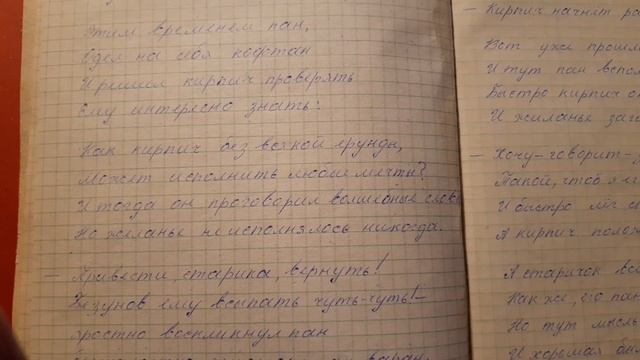 Этим временем пан,
Одел на себя кафтан
И решил кирпич проверять
Ему интересно знать:
Как кирпич без всякой ерунды,
Может исполнить любые мечты?
И тогда он проговорил волшебные слова
Но желанье не исполнялось никогда.
— Привести, старика, вернуть!
Везунов ему всыпать чуть-чуть!—
Яростно воскликнул пан
— Кирпич начнёт
Вот уже прошло
И тут пан вспом
Быстро кирпич
И жиланье заг
— Хочу-говорит-
Такой, чтоб я
И быстро лёг
А кирпич полож
А старичок вс
Как же, его пан
Но тут мысль
И хорошая бы